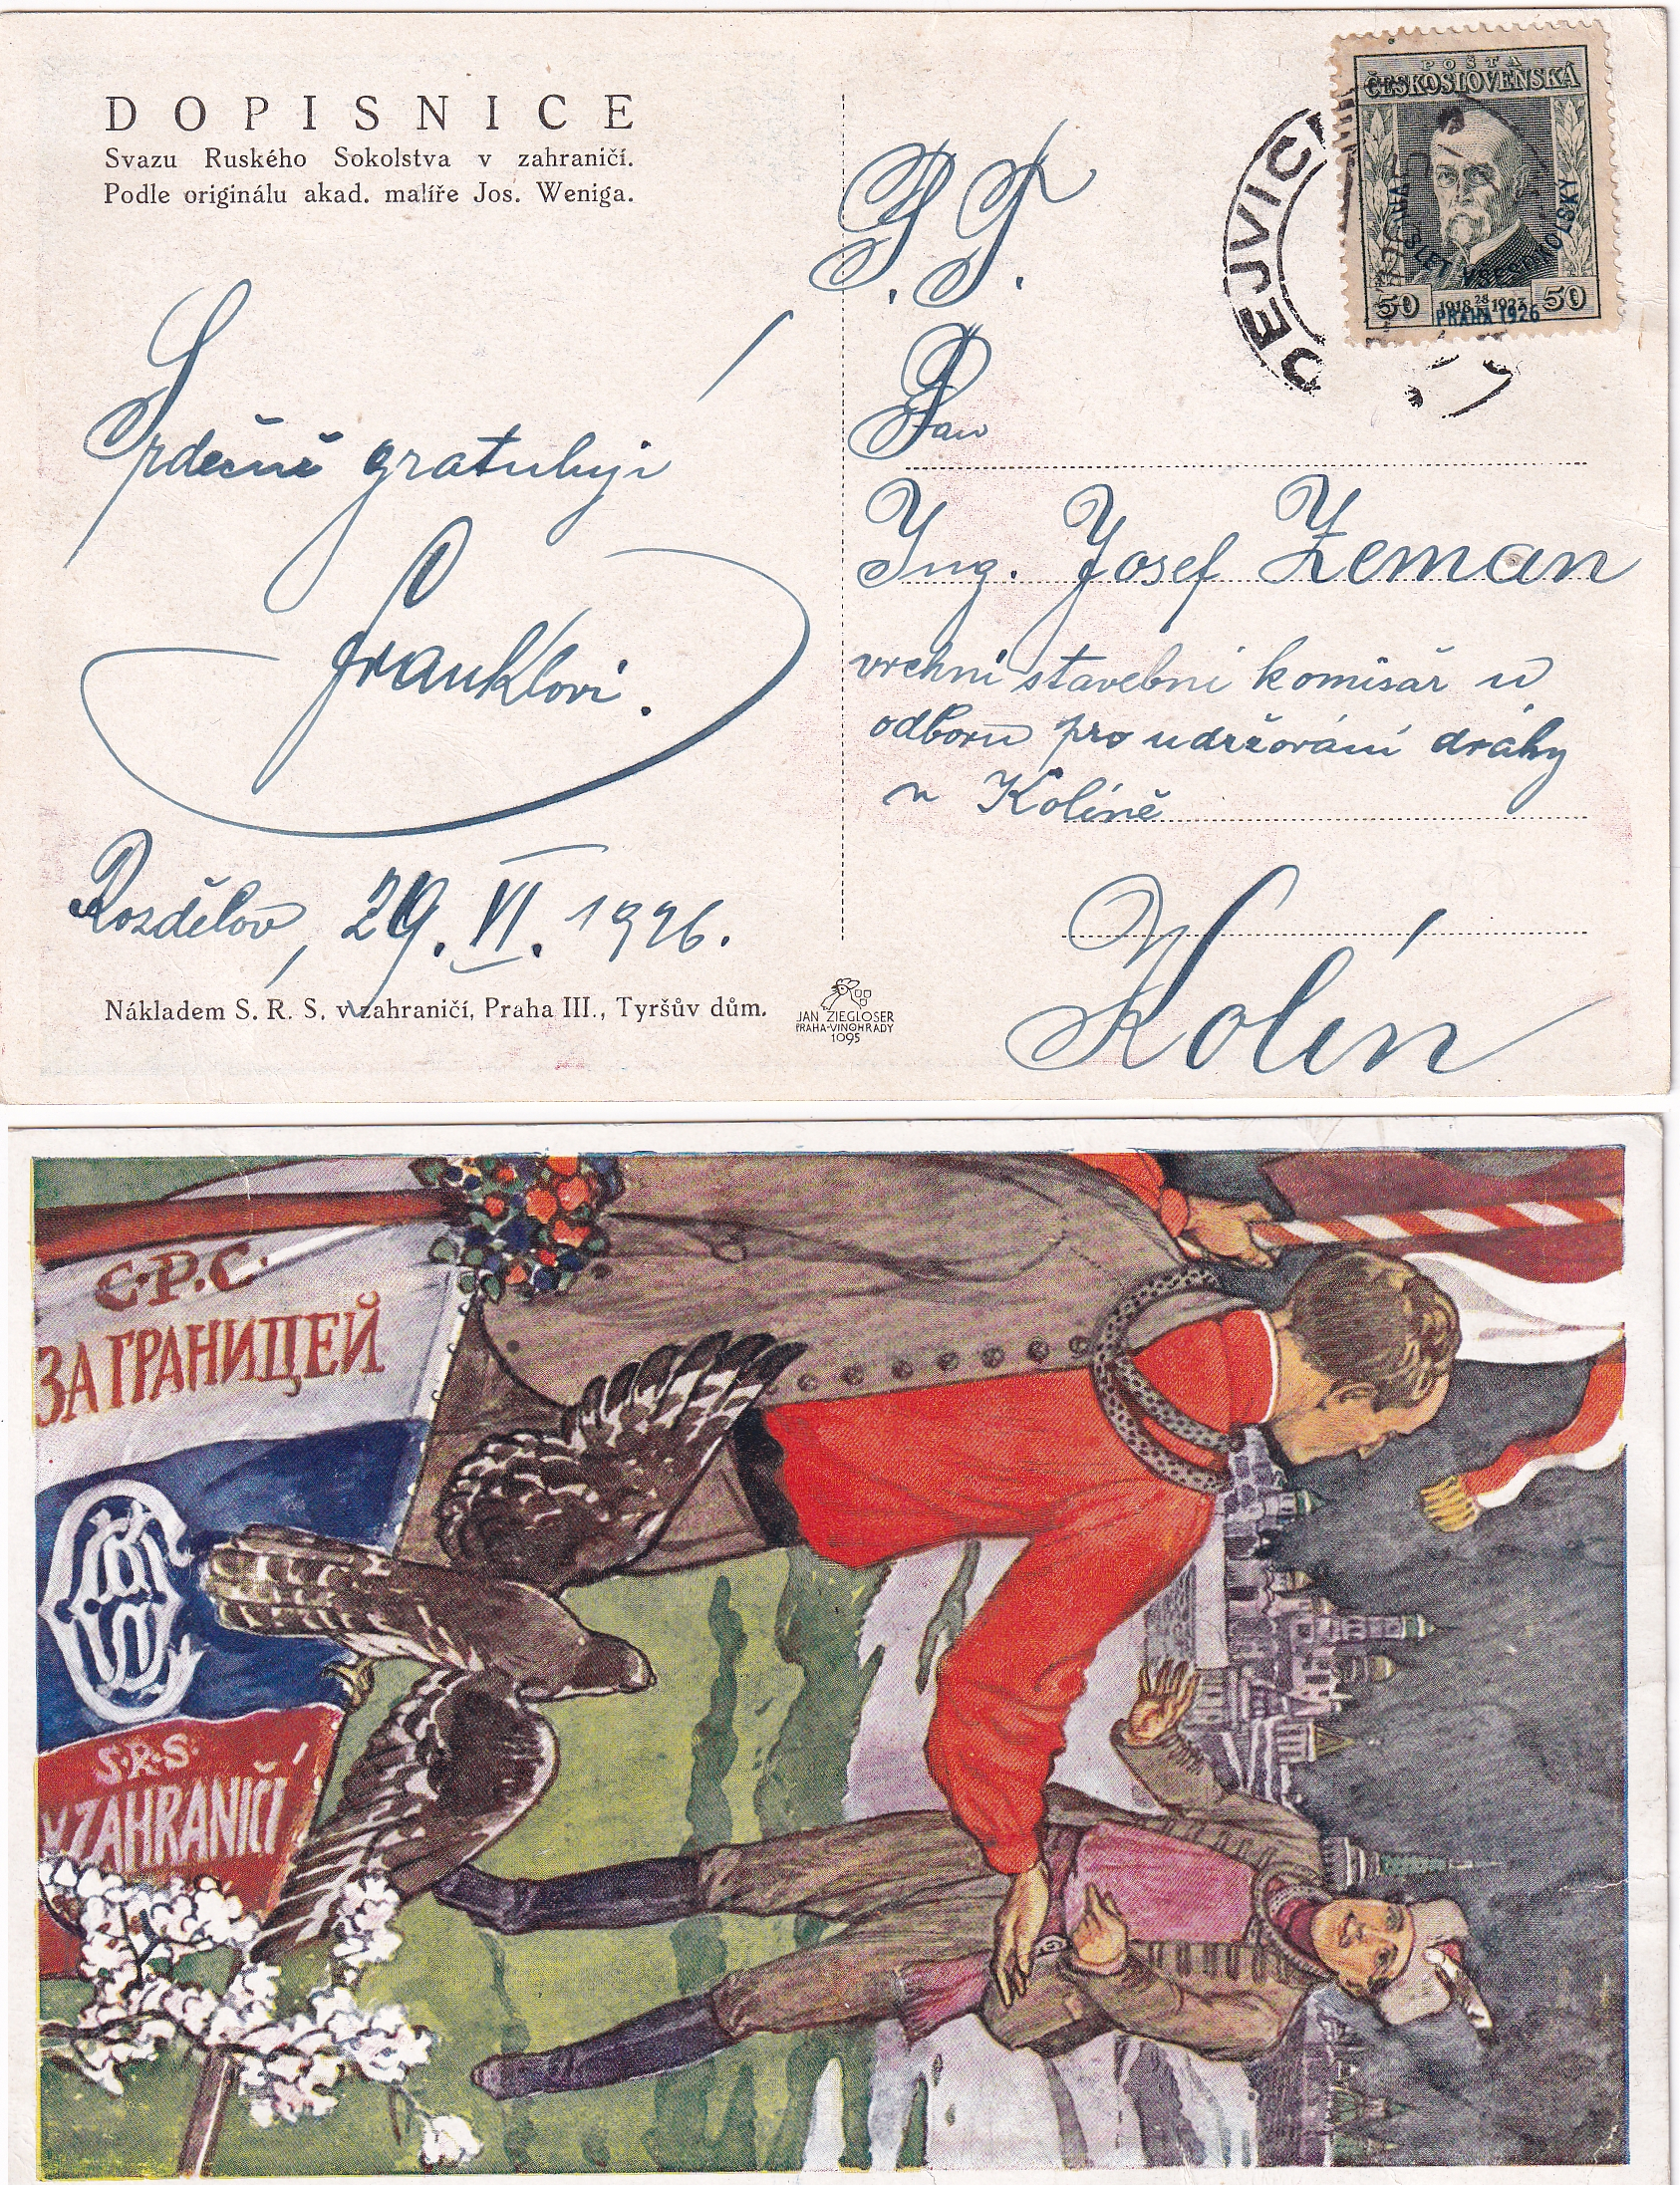 DOPISNICE
Svazu Ruského Sokolstva v zahraničí.
Podle originálu akad. malíře Jos. Weniga.
Srdečně gratulují
Franklovi.
Rozdělov, 29. VI. 1926.
Nákladem S. R. S. v zahraničí, Praha III., Tyršův dům.
JAN ZIEGLOSER
PRAHA-VINOHRADY
1095
POŠTA
ČESKOSLOVENSKÁ
SLET VŠESOKOLSKÝ
50 1918 28 1923 50
PRAHA 1926
DEJVIC
P. T.
Pan
Ing. Josef Zeman
vrchní stavební komisař u
odboru pro udržování dráhy
v Kolíně
Kolín
С.Р.С.
ЗАГРАНИЦЕЙ
S.R.S.
V ZAHRANIČÍ